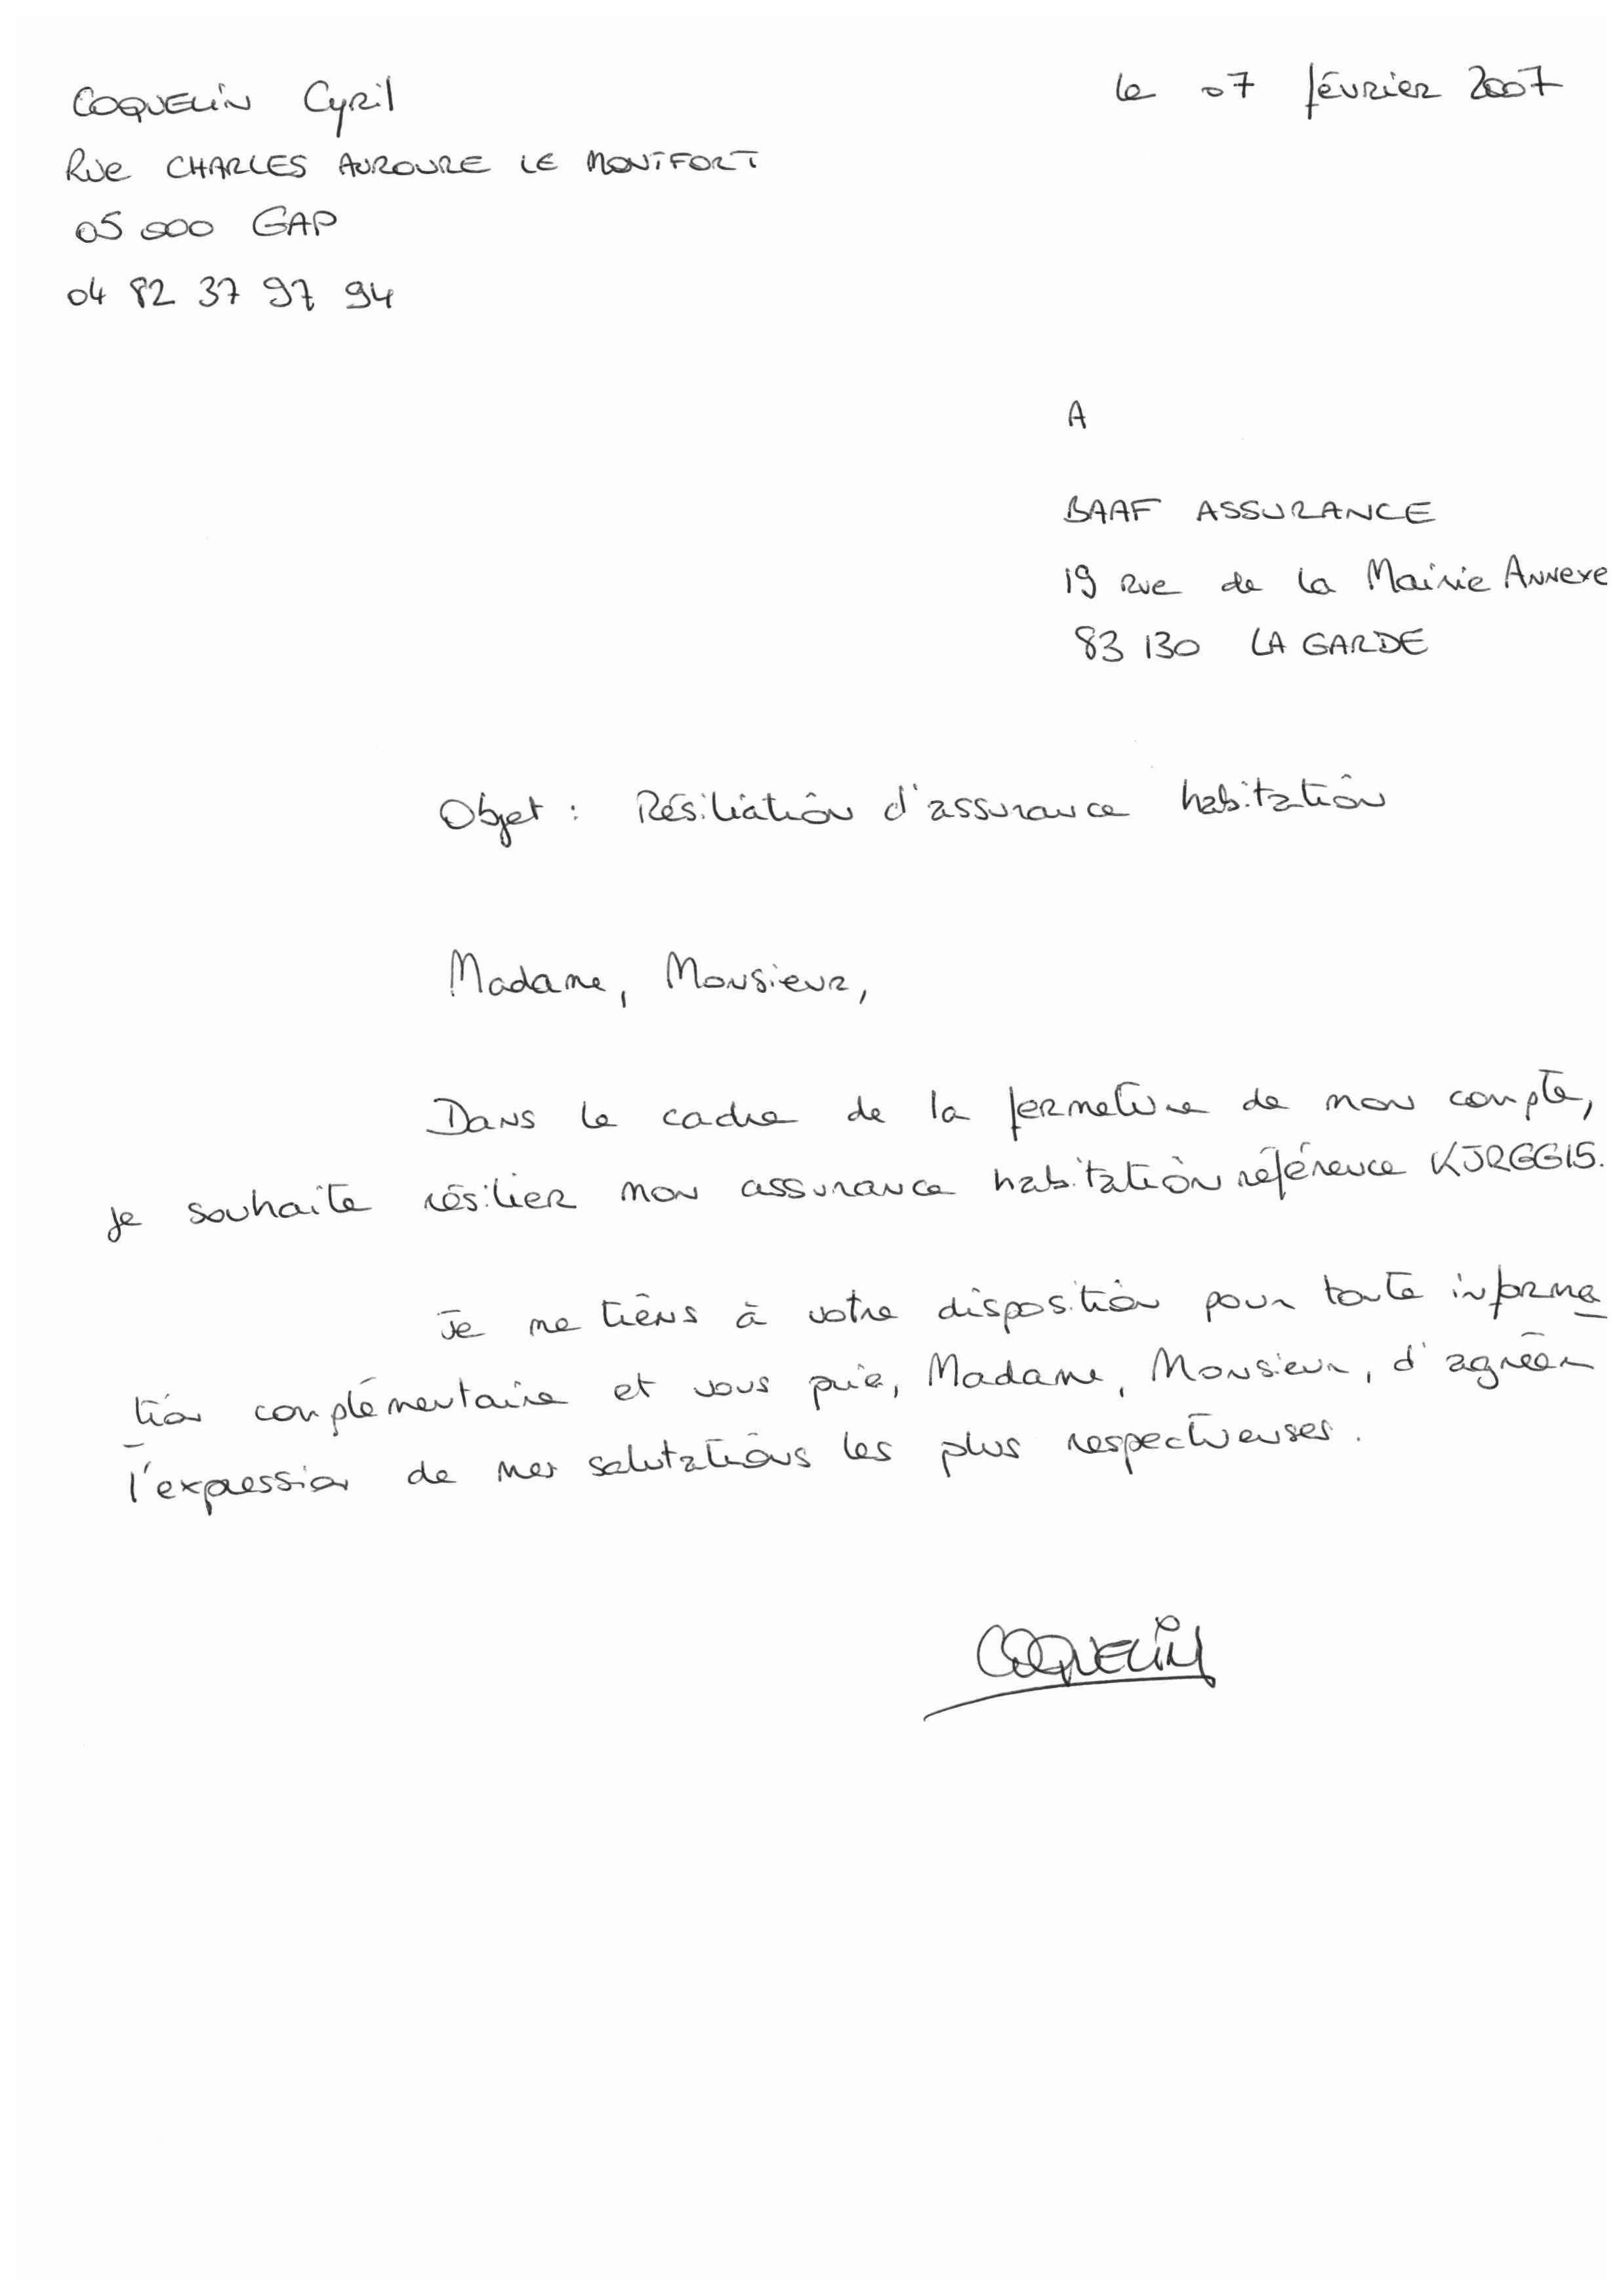 COQUELIN Cyril
le 07 février 2007
Rue CHARLES AUROURE LE MONTFORT
05 000 GAP
04 82 37 97 94
A
BAAF ASSURANCE
19 rue de la Mairie Annexe
83 130 LA GARDE
Objet : Résiliation d'assurance habitation
Madame, Monsieur,
Dans le cadre de la fermeture de mon compte,
je souhaite résilier mon assurance habitation référence KJRGG15.
Je me tiens à votre disposition pour toute informa
tion complémentaire et vous prie, Madame, Monsieur, d'agréer
l'expression de mes salutations les plus respectueuses.
COQUELIN